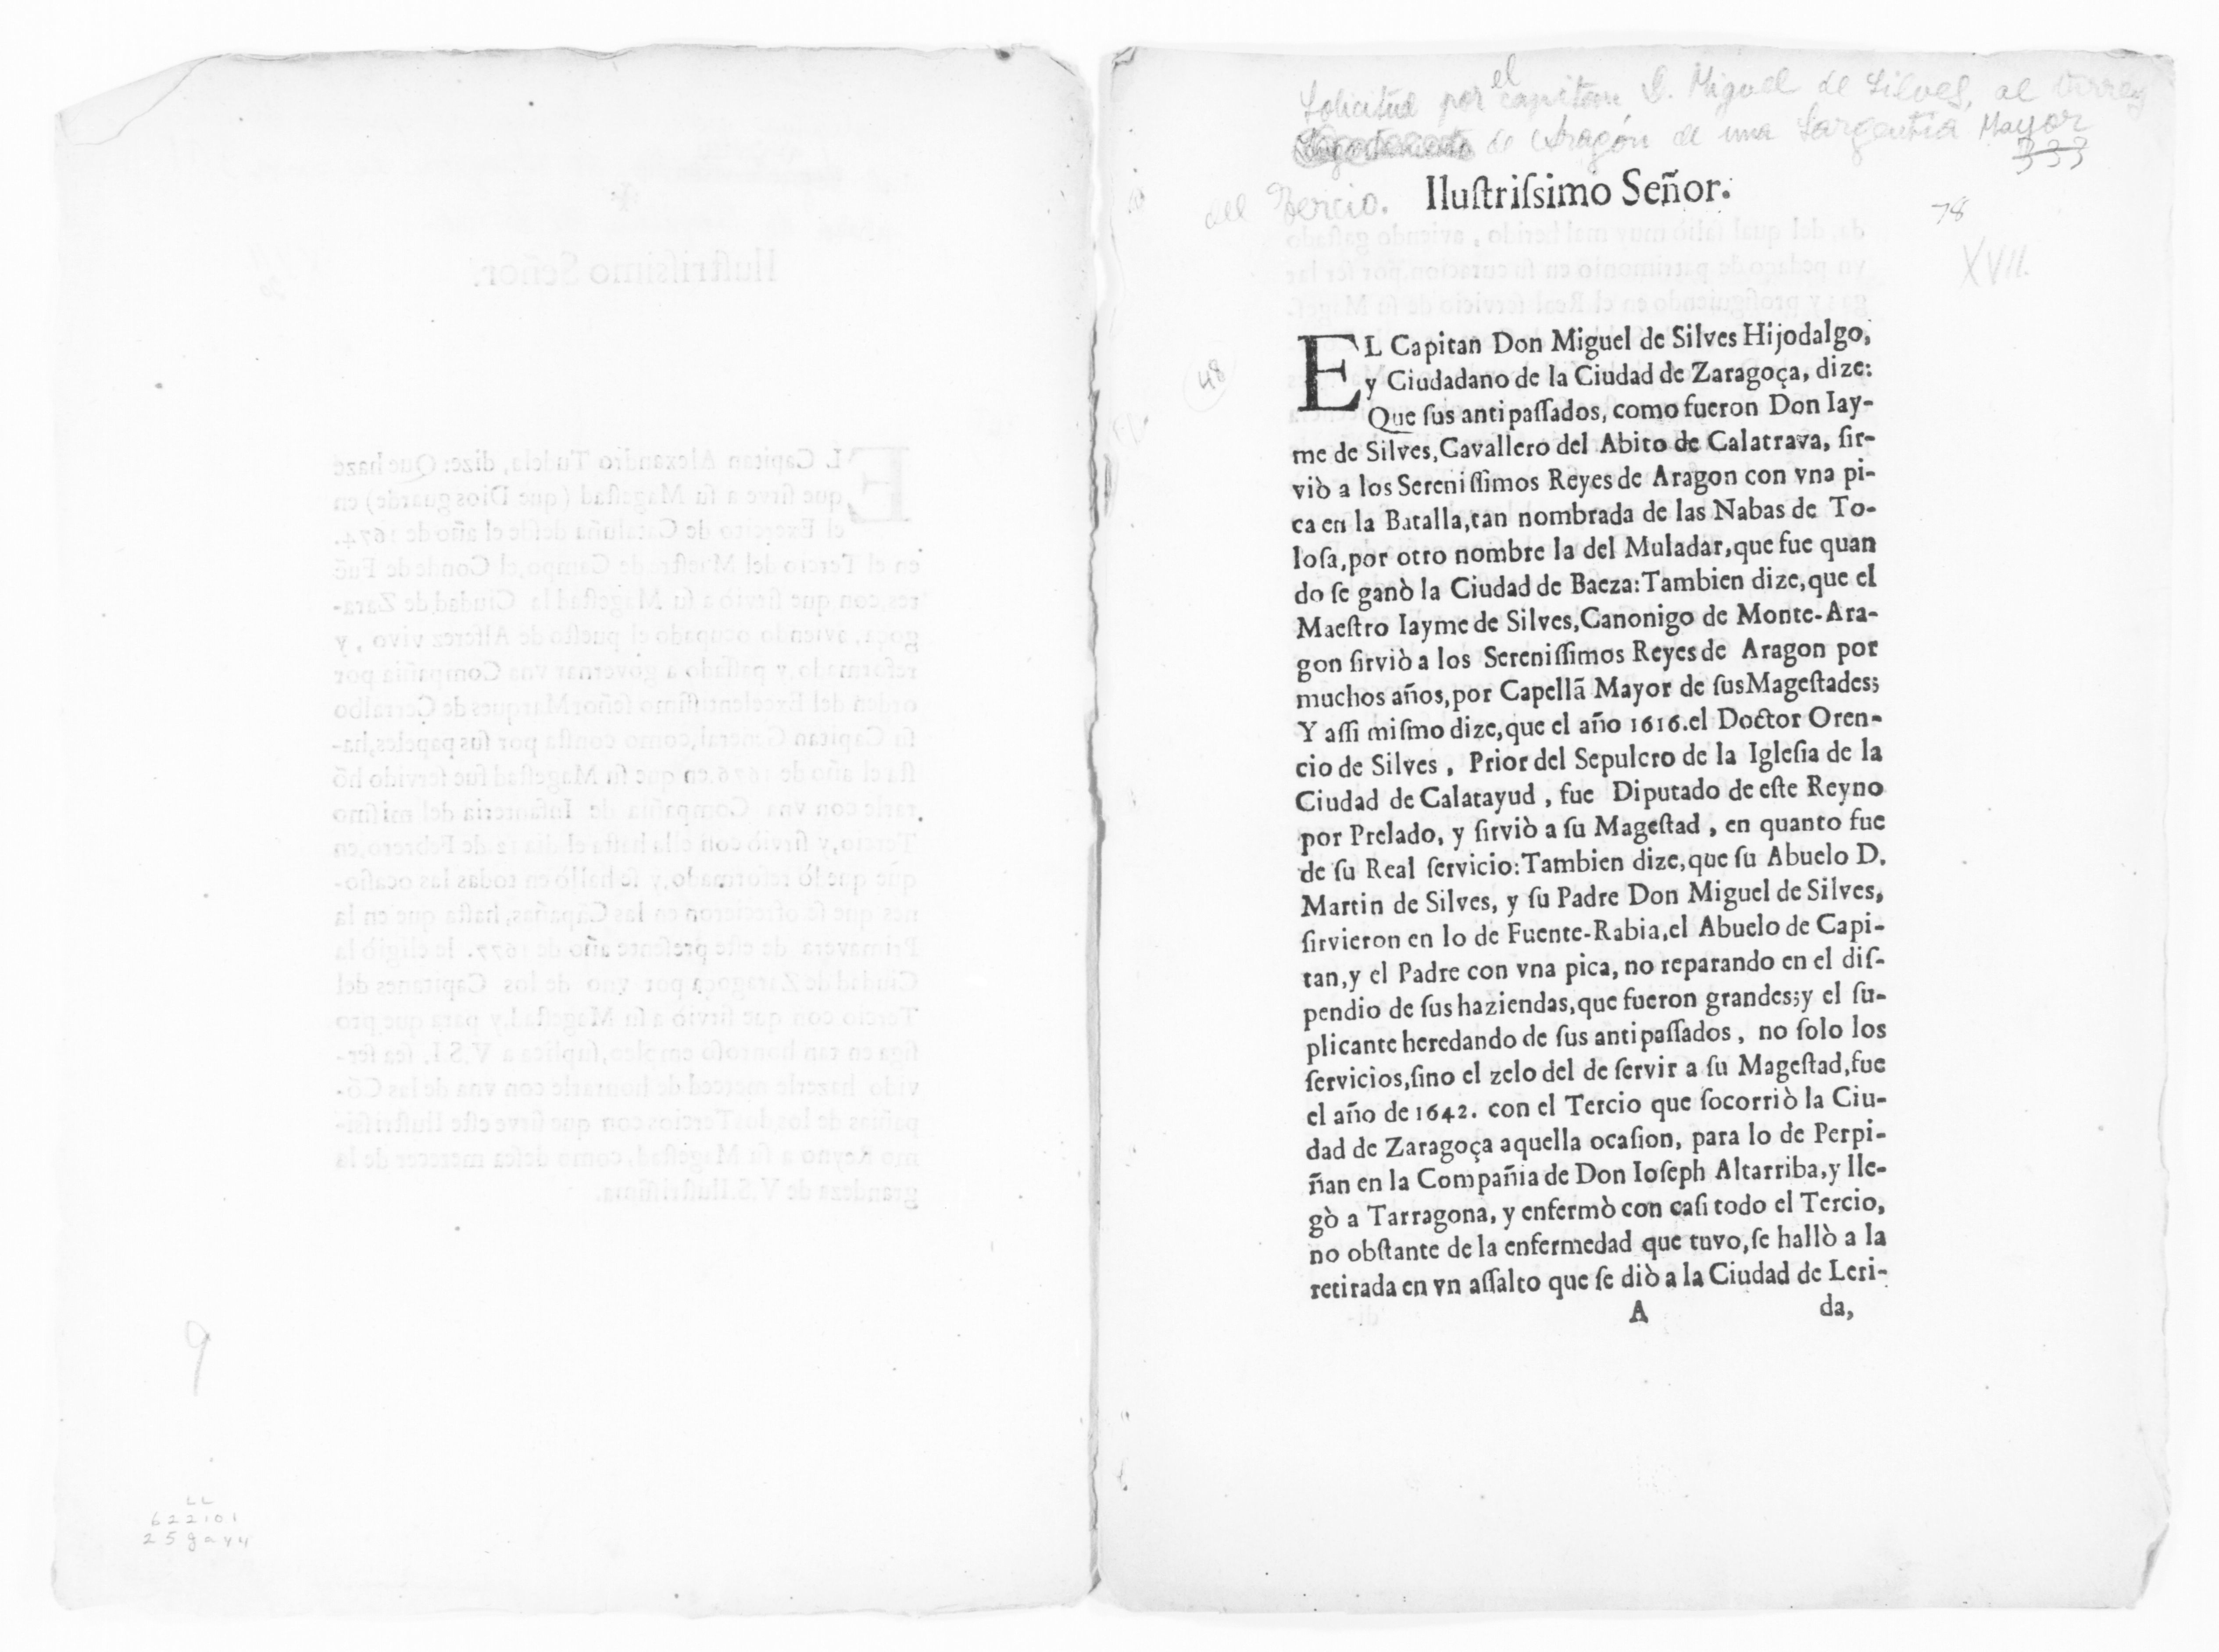 9
LL
622101
25gavy
Solicitud por el capitan D. Miguel de Silves, al Virrey
de Aragón de una Sargentia Mayor
333
del Tercio.
Ilustrissimo Señor.
78
XVII.
48
EL Capitan Don Miguel de Silves Hijodalgo,
y Ciudadano de la Ciudad de Zaragoça, dize:
Que sus antipassados, como fueron Don Iay-
me de Silves, Cavallero del Abito de Calatrava, sir-
viò a los Serenissimos Reyes de Aragon con vna pi-
ca en la Batalla, tan nombrada de las Nabas de To-
losa, por otro nombre la del Muladar, que fue quan
do se ganò la Ciudad de Baeza: Tambien dize, que el
Maestro Iayme de Silves, Canonigo de Monte-Ara-
gon sirviò a los Serenissimos Reyes de Aragon por
muchos años, por Capellã Mayor de sus Magestades;
Y assi mismo dize, que el año 1616. el Doctor Oren-
cio de Silves, Prior del Sepulcro de la Iglesia de la
Ciudad de Calatayud, fue Diputado de este Reyno
por Prelado, y sirviò a su Magestad, en quanto fue
de su Real servicio: Tambien dize, que su Abuelo D.
Martin de Silves, y su Padre Don Miguel de Silves,
sirvieron en lo de Fuente-Rabia, el Abuelo de Capi-
tan, y el Padre con vna pica, no reparando en el dis-
pendio de sus haziendas, que fueron grandes; y el su-
plicante heredando de sus antipassados, no solo los
servicios, sino el zelo del de servir a su Magestad, fue
el año de 1642. con el Tercio que socorriò la Ciu-
dad de Zaragoça aquella ocasion, para lo de Perpi-
ñan en la Compañia de Don Ioseph Altarriba, y lle-
gò a Tarragona, y enfermò con casi todo el Tercio,
no obstante de la enfermedad que tuvo, se hallò a la
retirada en vn assalto que se diò a la Ciudad de Leri-
A da,